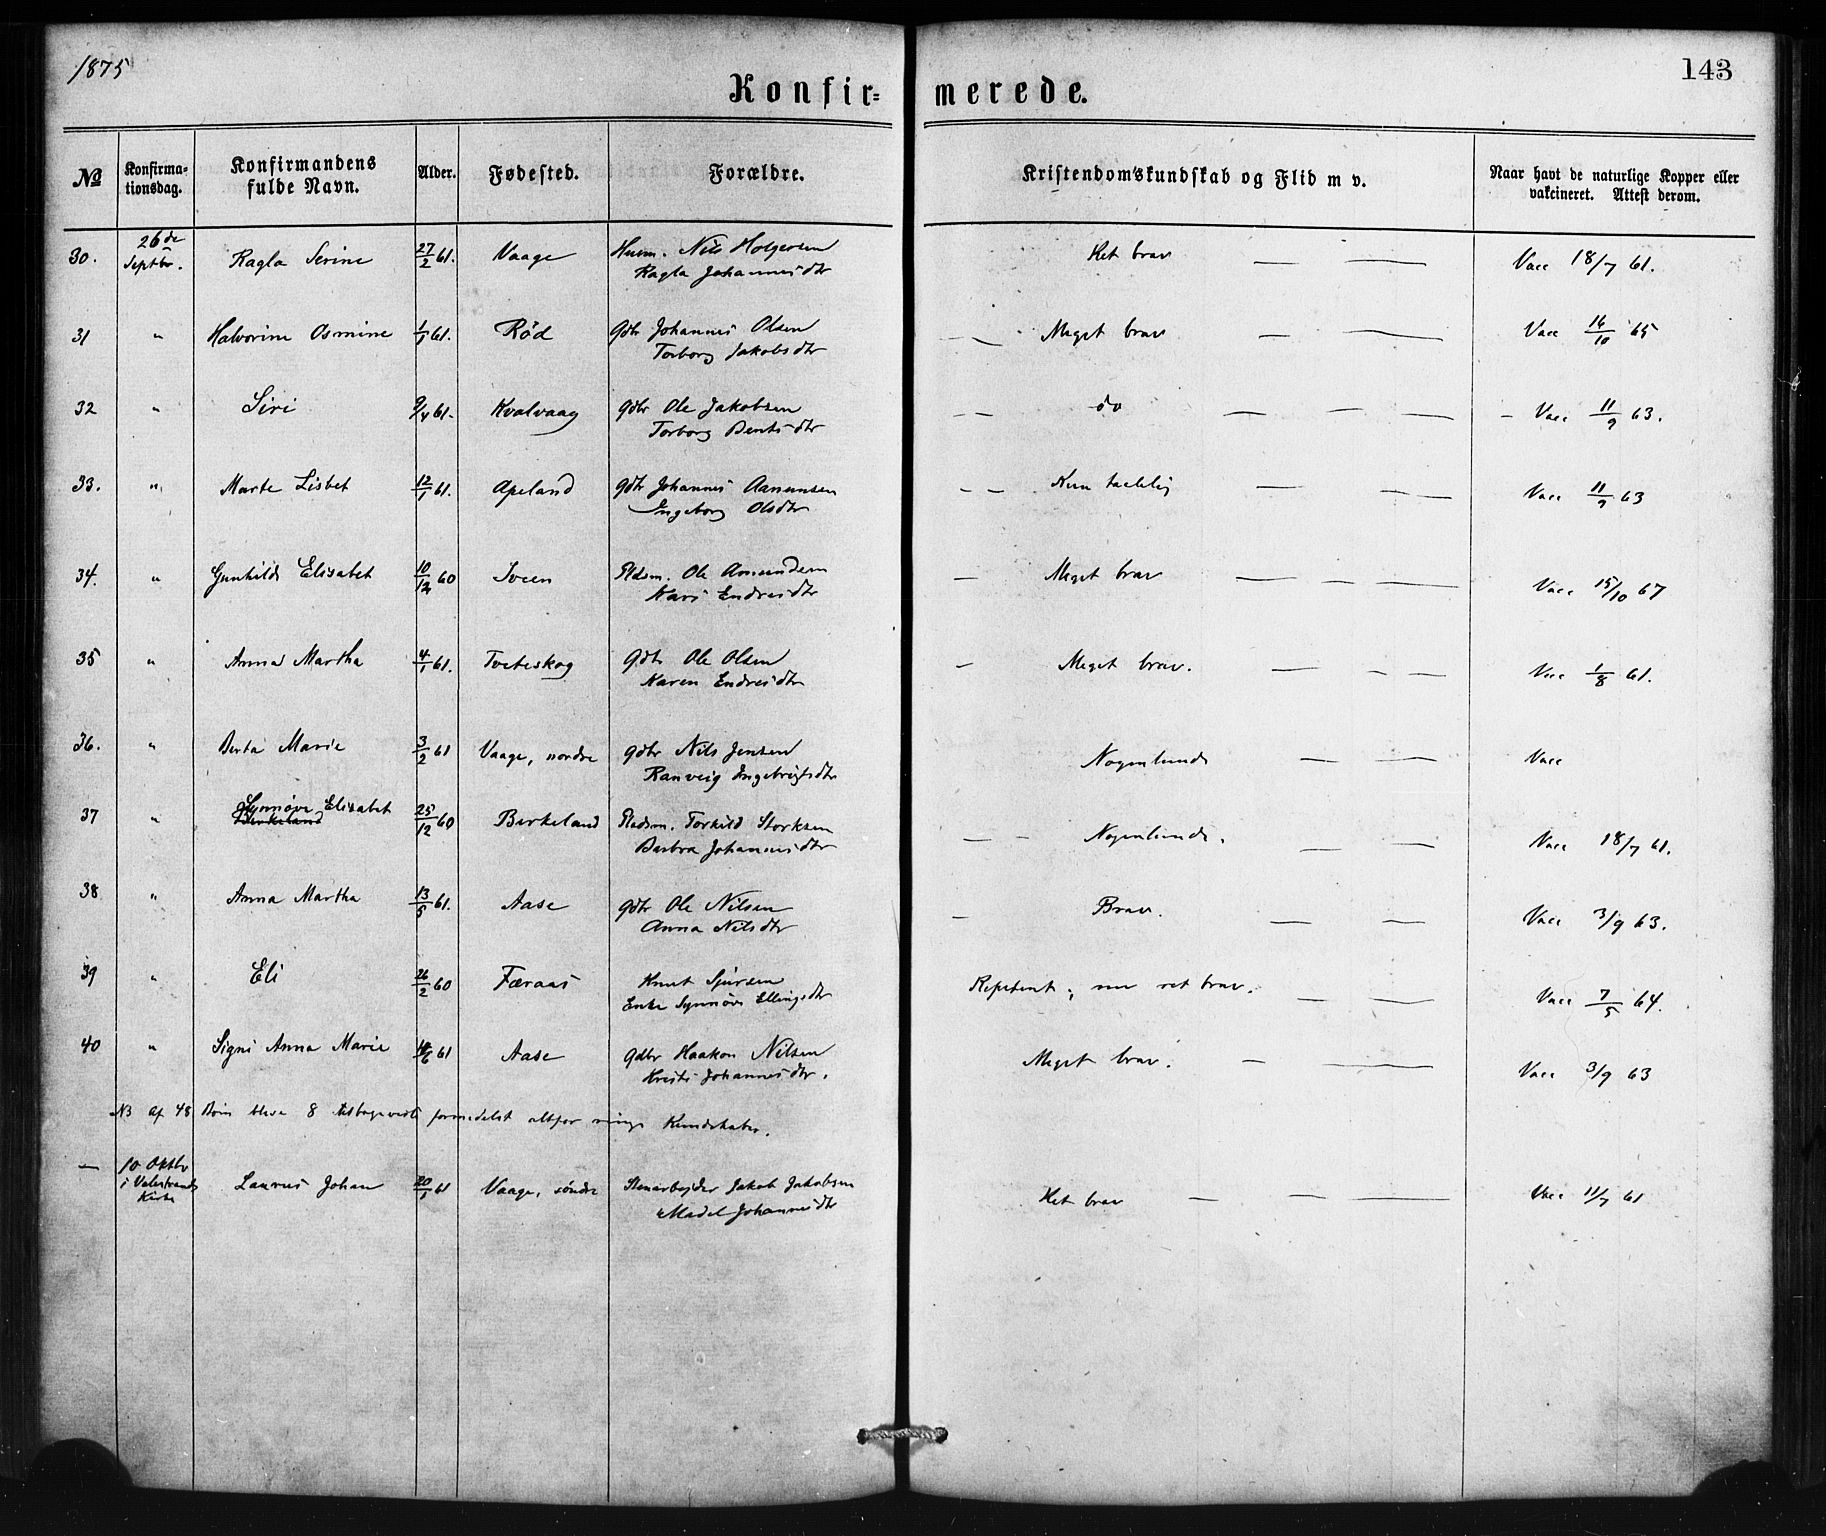 1875
143
Konfir= merede.
№ Konfirma-tionsdag. Konfirmandens fulde Navn. Alder. Fødested. Forældre. Kristendomskundskab og Flid m v. Naar havt de naturlige Kopper eller vakcineret. Attest derom.
30. 26de Septbr. Ragla Serine 27/2 61. Vaage Husm. Nils Holgersen Ret brav — — Vacc 18/7 61.
Ragla Johannesdtr
31 " Halvorine Osmine 1/1 61. Rød Gdbr Johannes Olsen Meget brav — — Vacc 16/10 65
Torborg Jakobsdtr
32 " Siri 9/4 61. Kvalvaag Gdbr Ole Jakobsen do — — — Vacc 11/9 63.
Torborg Bentsdtr
33. " Marte Lisbet 12/1 61. Apeland Gdbr Johannes Aanensen Kun taalelig — — — Vacc 11/9 63
Ingeborg Olsdtr
34. " Gunhild Elisabet 10/12 60 Sveen Pladsm. Ole Amundsen Meget brav — — — Vacc 15/10 67
Kari Endresdtr
35 " Anna Martha 4/1 61. Tveteskog Gdbr Ole Olsen Meget brav. — — — Vacc 1/8 61.
Karen Endresdtr
36. " Berta Marie 3/2 61 Vaage, nordre Gdbr Nils Jensen Nogenlunde — — Vacc
Ranveig Ingebrigtsdtr
37 " Synnøve Elisabet 25/12 60 Birkeland Pladsm. Torkild Storksen Nogenlunde. — — Vacc 18/7 61.
Birkeland Barbra Johannesdtr
38 " Anna Martha 13/5 61. Aase Gdbr Ole Nilsen Brav. — — Vacc 3/9 63.
Anna Nilsdtr
39 " Eli 26/2 60 Færaas Knut Sjursen Repetent; nu ret brav. — — Vacc 7/5 64.
Enke Synnøve Ellingsdtr
40 " Signi Anna Marie 61 Aase Gdbr Haakon Nilsen Meget brav. — — Vacc 3/9 63
Kristi Johannesdtr.
NB Af 48 Børn bleve 8 tilbageviste formedelst altfor ringe Kundskaber.
— 10 Oktbr i Valestrands Kirke Laurus Johan 20/1 61 Vaage, søndre Stenarbejder Jakob Jakobsen Ret brav — — — Vacc 11/7 61
Madel Johannesdtr